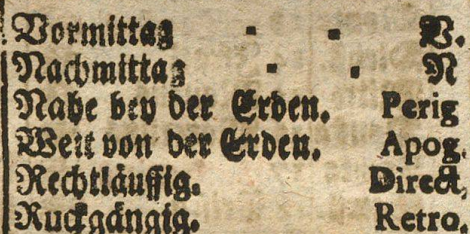 Vormittag . . V.
Nachmittag . . N
Nahe bey der Erden. Perig
Weit von der Erden. Apog.
Rechtläuffig. Direct.
Ruckgängig. Retro.